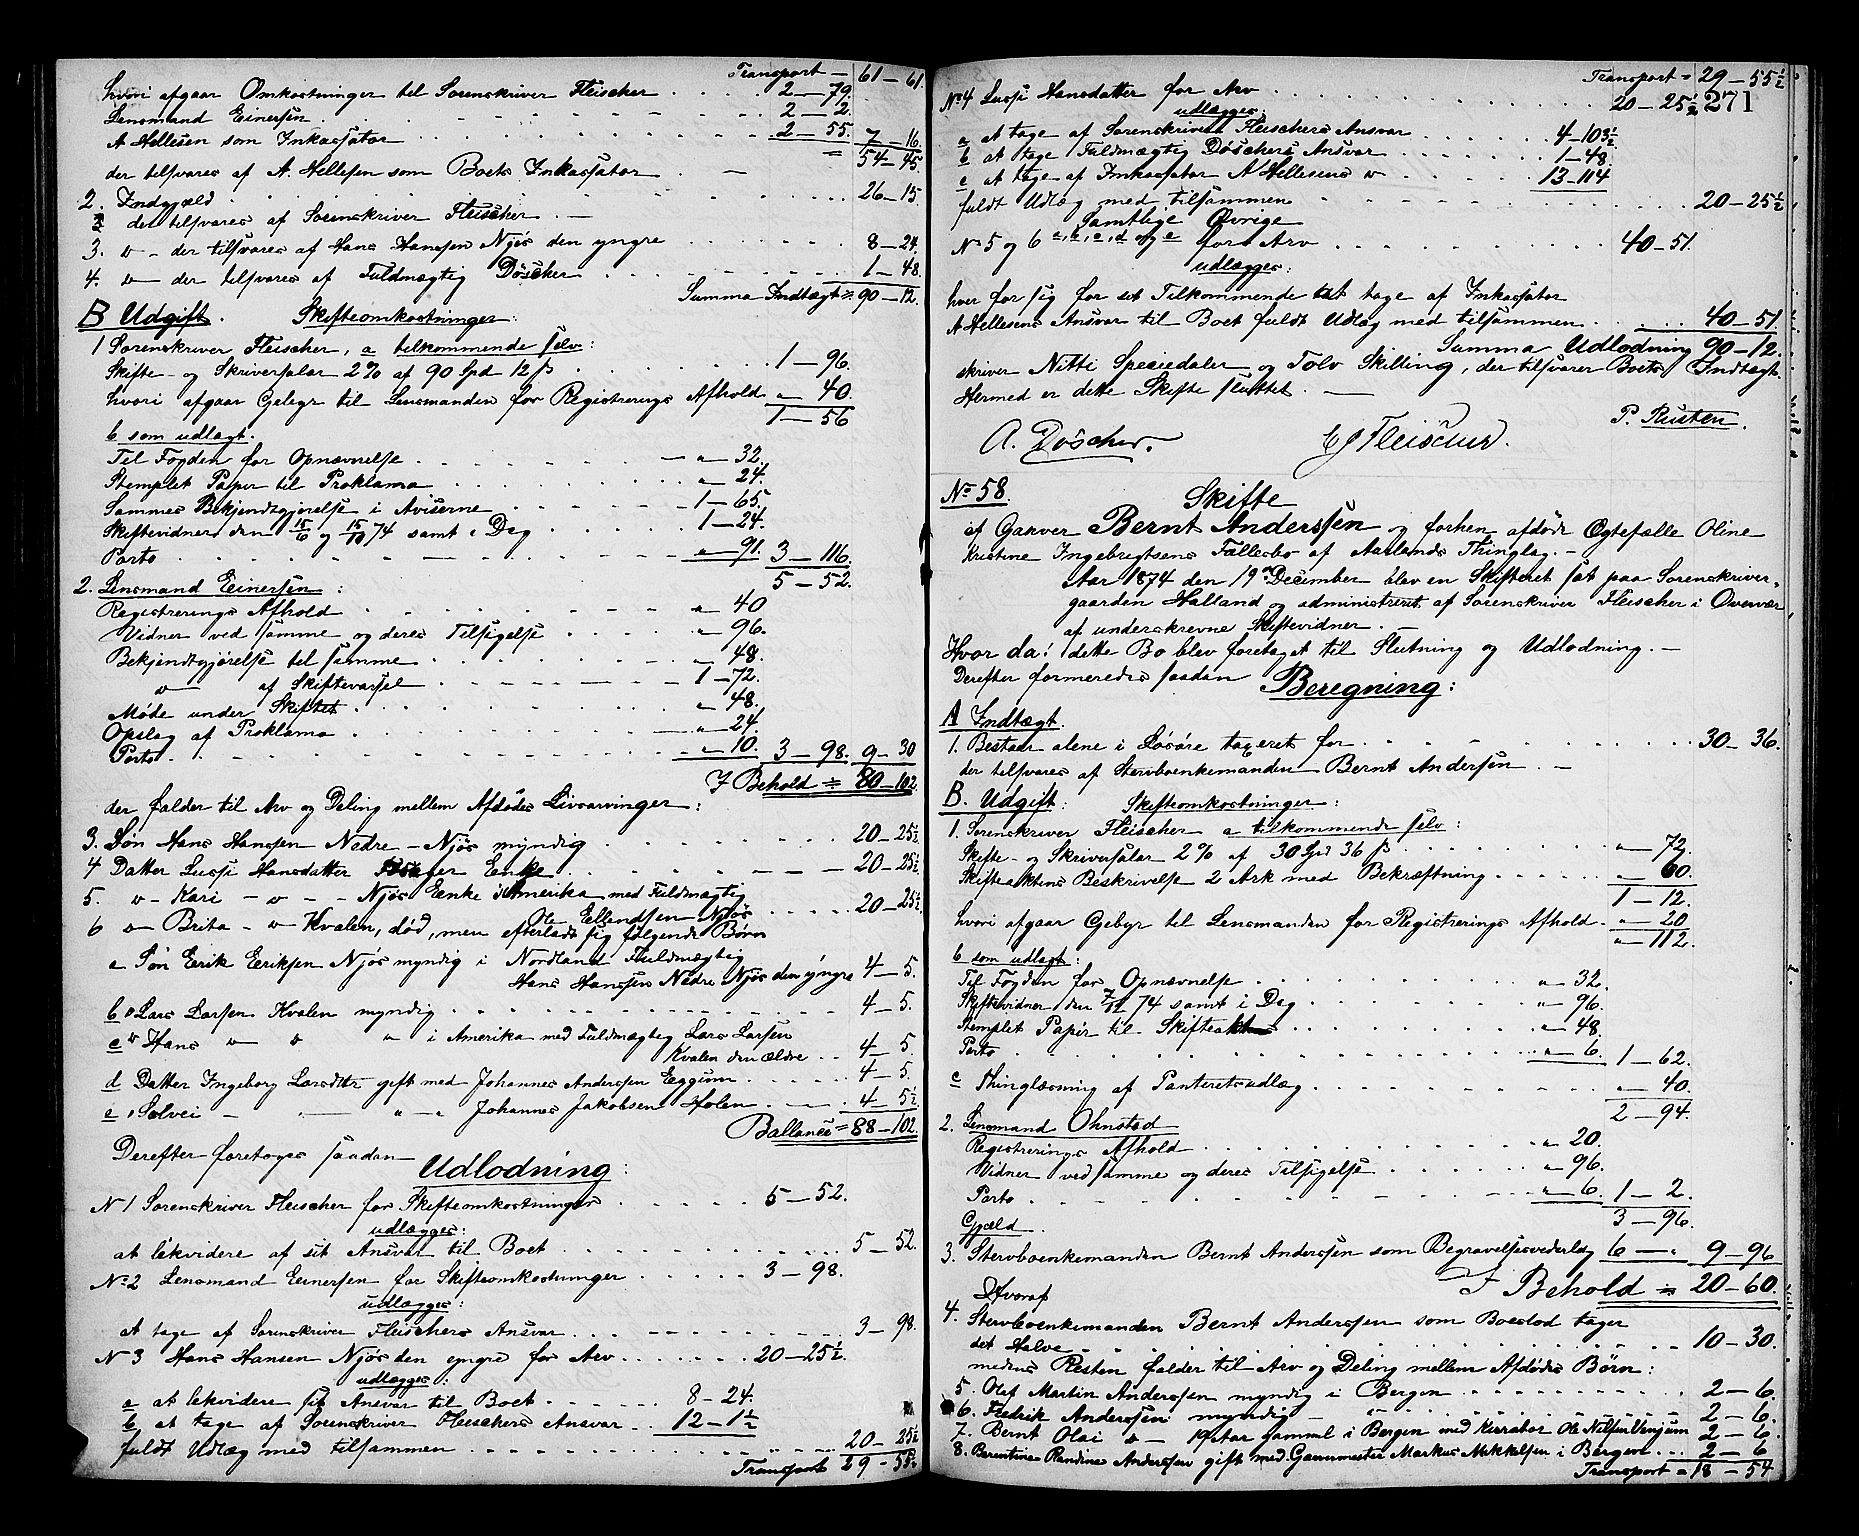 Transport — 61 — 61
hvori afgaar Omkostninger til Sorenskriver Fleischer . . . . 2 — 79.
Lensmand Einersen . . . 2 — 2.
A Hellesen som Inkassator 2 — 55. 7 — 16.
der tilsvares af A. Hellesen som Boets Inkassator . — = 54 — 45
2. Indgjæld . . . 26 — 15.
der tilsvares af Sorenskriver Fleischer . —
3. do — der tilsvares af Hans Hanssen Njøs den yngre . . . 8 — 24.
4. do — der tilsvares af Fuldmægtig Döscher . . . 1 — 48.
Summa Indtægt = 90 — 12.
B Udgift. Skifteomkostninger:
1 Sorenskriver Fleischer, a tilkommende selv:
Skifte- og Skriversalær 2% af 90 Spd 12 ß . . . 1 — 96.
hvori afgaar Gebyr til Lensmanden for Registrerings Afhold " — 40.
1 — 56
b som udlagt.
Til Fogden for Opnævnelse . . . " — 32.
Stemplet Papir til Proklama . . . " — 24.
Sammes Bekjendtgjørelse i Aviserne . . . 1 — 65.
Skiftevidner den 15/6 og 15/10 74 samt i Dag . . . 1 — 24.
Porto . . . " — 91. 3 — 116.
5 — 52.
2. Lensmand Einersen:
Registrerings Afhold . . . " 40
Vidner ved samme og deres Tilsigelse . . . " 96.
Bekjendtgjørelse til samme . . . " 48.
do af Skiftevarsel . . . 1 — 72.
Møde under Skiftet . . . " 48.
Opslag af Proklama . . . " — 24.
Porto . . . " — 10. 3 — 98. 9 — 30
I Behold = 80 — 102
der falder til Arv og Deling mellem Afdødes Livsarvinger:
3. Søn Hans Hanssen Nedre-Njøs myndig . . . 20 — 25½
4 Datter Lussi Hansdatter Enke . . . 20 — 25½
5. do — Kari — do — Njøs Enke i Amerika med Fuldmægtig
Ole Ellendsen Njøs . . . 20 — 25½
6 do — Brita — do Kvalen, død, men efterladt sig følgende Børn
a Søn Erik Eriksen Njøs myndig i Nordland Fuldmægtig
Hans Hanssen Nedre Njøs den yngre 4 — 5.
b do Lars Larsen Kvalen myndig . . . 4 — 5.
c do Hans do do " i Amerika med Fuldmægtig Lars Larsen
Kvalen den ældre . . 4 — 5.
d Datter Ingeborg Larsdtr gift med Johannes Anderssen Eggum . . . 4 — 5.
e " Solvei — " — " Johannes Jakobsen Holen . . . 4 — 5½
Ballance = 88 — 102.
Derefter foretoges saadan
Udlodning:
N 1 Sorenskriver Fleischer for Skifteomkostninger . . . 5 — 52.
udlægges:
at likvidere af sit Ansvar til Boet . . . 5 — 52.
No 2 Lensmand Einersen for Skifteomkostninger . . . 3 — 98.
udlægges:
at tage af Sorenskriver Fleischers Ansvar . . . 3 — 98.
N 3 Hans Hansen Njøs den yngre for Arv . . . 20 — 25½.
udlægges:
a at likvidere sit Ansvar til Boet . . . 8 — 24.
b at tage af Sorenskriver Fleischers Ansvar . . . 12 — 1½
fuldt Udlæg med tilsammen . . . 20 — 25½
Transport 29 — 55½
Transport = 29 — 55½
271
No 4 Lussi Hansdatter for Arv . . . 20 — 25½
udlægges:
a at tage af Sorenskriver Fleischers Ansvar . . . 4 — 103½
b at tage Fuldmægtig Döschers Ansvar . . . 1 — 48.
c at tage af Inkassator A Hellesens do . . . 13 — 114
fuldt Udlæg med tilsammen . . . 20 — 25½
Samtlige Øvrige
No 5 og 6 a, b, c, d og e for Arv . . . 40 — 51.
udlægges:
hver for sig for sit Tilkommende at tage af Inkassator
A Hellesens Ansvar til Boet fuldt Udlæg med tilsammen . . . 40 — 51.
Summa Udlodning 90 — 12.
skriver Nitti Speciedaler og Tolv Skilling, der tilsvarer Boets Indtægt.
Hermed er dette Skifte sluttet. —
A. Döscher. EJFleischer. P. Rusten.
No 58.
Skifte
ef Garver Bernt Anderssen og forhen afdøde Ægtefælle Oline
Kristine Ingebrigtsens Fællesbo af Aarlands Thinglag. —
Aar 1874 den 19 December blev en Skifteret sat paa Sorenskriver-
gaarden Halland og administreret af Sorenskriver Fleischer i Overvær
af underskrevne Skiftevidner. —
Hvor da: dette Bo blev foretaget til Slutning og Udlodning. —
Derefter formeredes saadan Beregning:
A Indtægt.
1. Bestaar alene i Løsøre taxeret for . . . 30 — 36.
der tilsvares af Stervboenkemanden Bernt Andersen . —
B. Udgift: Skifteomkostninger:
1. Sorenskriver Fleischer a tilkommende selv:
Skifte- og Skriversalær 2% af 30 Spd 36 ß . . . " — 72.
Skifteaktens Beskrivelse 2 Ark med Bekræftning . . . " — 60.
1 — 12.
hvori afgaar Gebyr til Lensmanden for Registrerings Afhold . " — 20
" — 112.
b som udlagt:
Til Fogden for Opnævnelse . . . " 32.
Skiftevidner den 74 samt i Dag . . . " 96.
Stemplet Papir til Skifteakt . . . " 48.
Porto . . . " 6. 1 — 62.
c Thinglæsning af Panteretsudlæg . . . " — 40.
2 — 94.
2. Lensmand Ohnstad
Registrerings Afhold . . . " 20.
Vidner ved samme og deres Tilsigelse . . . " 96.
Porto . . . " 6. 1 — 2.
3 — 96.
Gjæld.
3. Stervboenkemanden Bernt Anderssen som Begravelsesvederlag 6 — " 9 — 96
I Behold = 20 — 60.
Hvoraf
4. Stervboenkemanden Bernt Anderssen som Boeslod tager
det Halve . . . 10 — 30.
medens Resten falder til Arv og Deling mellem Afdødes Børn:
5. Olaf Martin Anderssen myndig i Bergen . . . 2 — 6.
6. Fredrik Anderssen myndig — " . . . 2 — 6.
7. Bernt Olai do — 19 Aar gamml i Bergen med Kurator Ole Nilsen Vinjum 2 — 6.
8. Berentine Randine Anderssen gift med Mikkelsen i Bergen . . . 2 — 6
Transport = 18 — 54